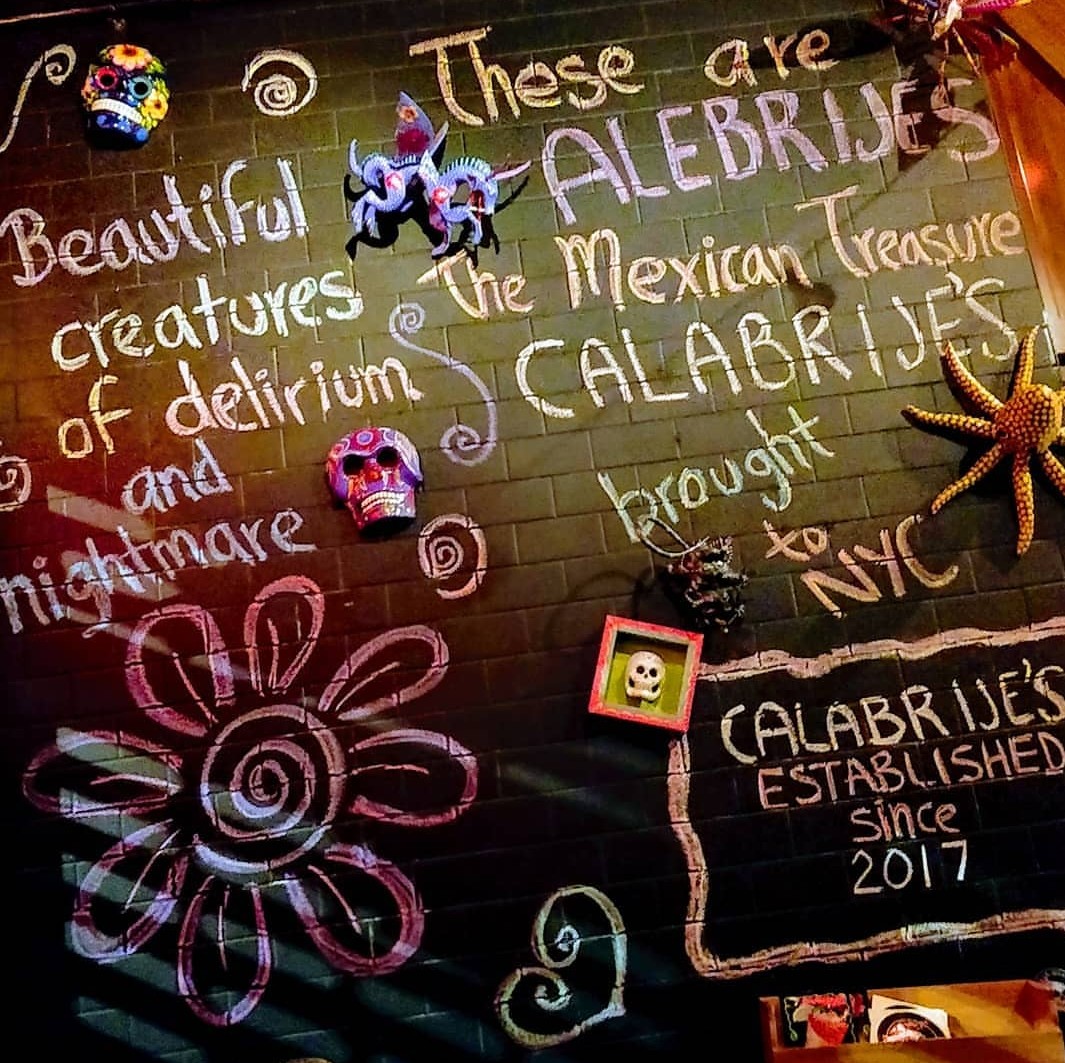 These are
ALEBRIJES
Beautiful
creatures
of delirium
and
nightmare
The Mexican Treasure
CALABRIJE'S
brought
to
NYC
CALABRIJE'S
ESTABLISHED
since
2017